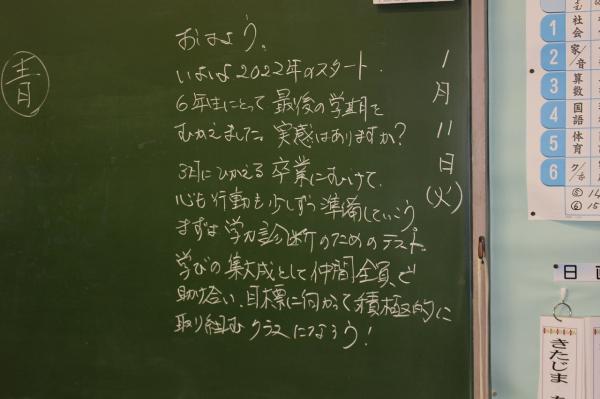 青
おはよう。
いよいよ2022年のスタート.
6年生にとって最後の学期を
むかえました。実感はありますか?
3月にひかえる卒業にむけて、
心も行動も少しずつ準備していこう。
まずは学力診断のためのテスト。
学びの集大成として仲間全員で
助け合い、目標に向かって積極的に
取り組むクラスになろう!
1月11日(火)
1 社会
2 家/音
3 算数
4 国語
5 体育
6
⑤ 14
⑥ 15
日直
きたじま